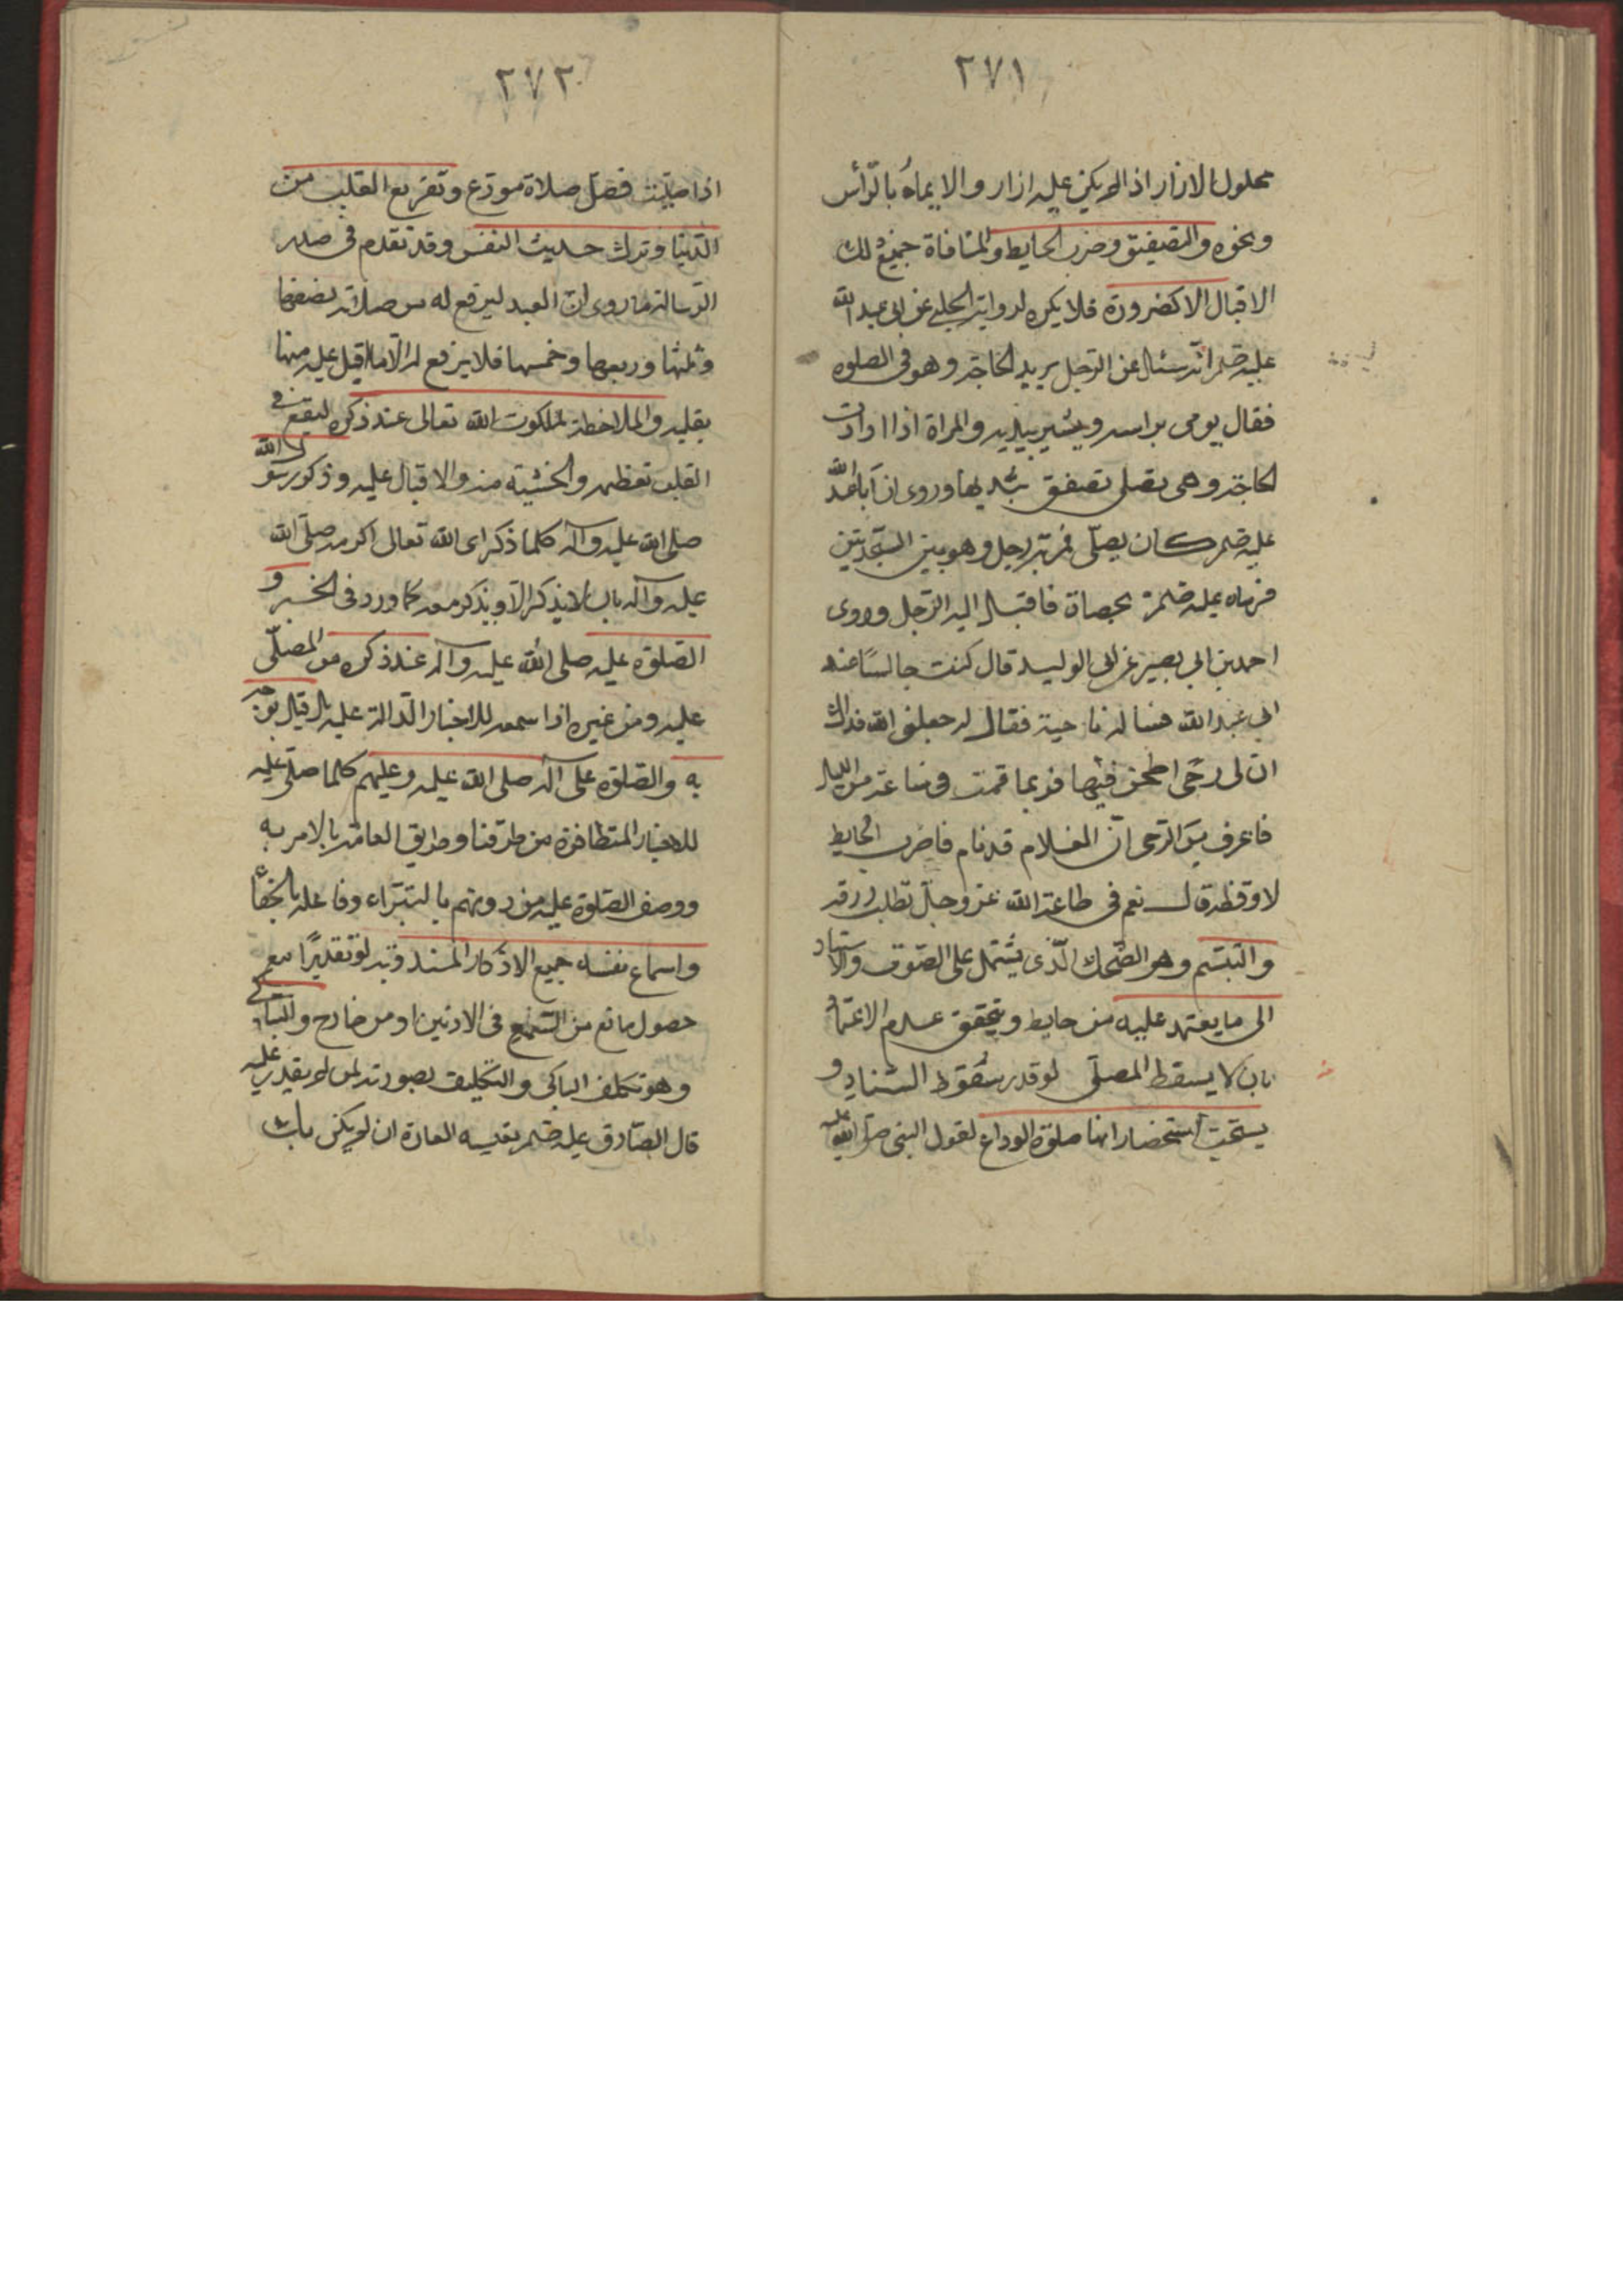 ٢٧١
محلول الازار اذا لم يكن عليه ازار والايماء بالرأس
ونحوه والتصفيق وضرب الحايط والمنافاة جميع ذلك
الاقبال الا لضرورة فلا يكره لرواية الحلبي عن ابي عبد الله
عليه انه سئل عن الرجل يريد الحاجة وهو في الصلوة
فقال يومى براسه ويشير بيديه والمراة اذا ارادت
الحاجة وهي تصلى تصفق بيديها وروى ان ابا عبد الله
عليه كان يصلّى فمر به رجل وهو بين السجدتين
فرماه عليه بحصاة فاقبل اليه الرجل وروى
احمد بن ابي بصير عن ابي الوليد قال كنت جالسًا عند
ابي عبد الله فساله ناجية فقال له جعلنى الله فداك
ان لى رحى اطحن فيها فربما قمت في ساعة من الليل
فاعرف من الرحى انّ الغلام قد نام فاضرب الحايط
لاوقظه قال نعم في طاعة الله عز وجل تطلب رزقه
والتبسّم وهو الضحك الّذى يشتمل على الصوت والاستناد
الى ما يعتمد عليه من حايط ويتحقق عدم الاعتماد
بان لا يسقط المصلّى لو قدر سقوط السناد و
يستحبّ استحضار انها صلوة الوداع لقول النبى صلى الله عليه
٢٧٢
اذا صليت فصلّ صلاة مودّع وتفريع القلب من
الدنيا وترك حديث النفس وقد تقدم في صدر
الرسالة ما روى انّ العبد ليرفع له من صلاته نصفها
وثلثها وربعها وخمسها فلا يرفع له الا ما اقبل عليه منها
بقلبه والملاحظة لملكوت الله تعالى عند ذكره ليقع في
القلب تعظيمه والخشية منه والاقبال عليه وذكر رسول الله
صلى الله عليه وآله كلما ذكر اى الله تعالى اكرمه صلّى الله
عليه وآله بان لا يذكر الا ويذكر معه كما ورد فى الخبر و
الصلوة عليه صلى الله عليه وآله عند ذكره من المصلّى
عليه ومن غيره اذا سمعه للاخبار الدالة عليه
به والصلوة على آله صلى الله عليه وعليهم كلما صلّى عليه
للاخبار المتظافرة من طرقنا وطريق العامة بالامر به
ووصف الصلوة عليه من دونهم بالبتراء وفاعله بالجفاء
واسماع نفسه جميع الاذكار المندوبة ولو تقديرًا مع
حصول مانع من السّمع في الاذنين او من خارج والتباكى
وهو تكلف الباكى والتكليف بصورته لمن لم يقدر عليه
قال الصّادق عليه العادة ان لم يكن بك